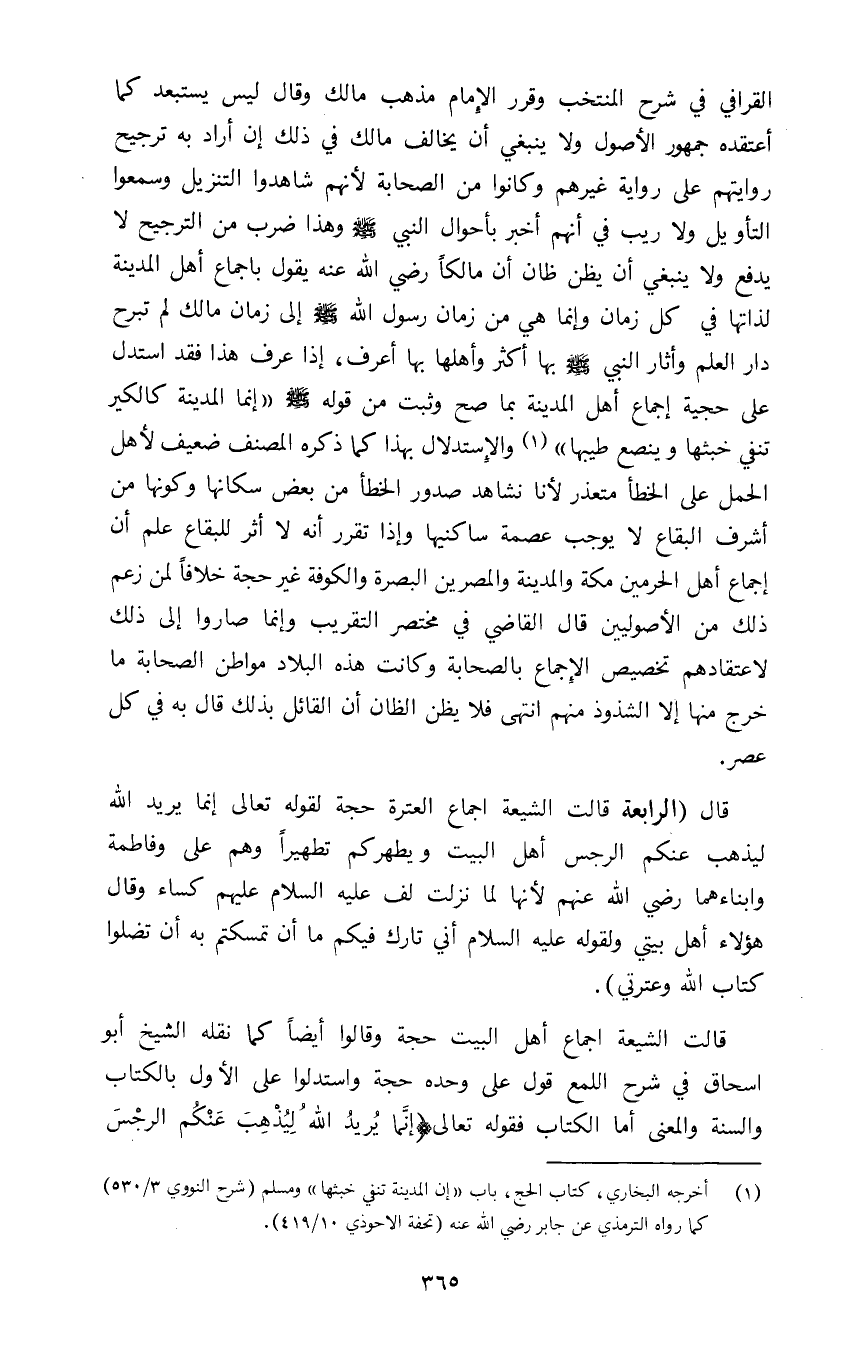 القرافي في شرح المنتخب وقرر الإمام مذهب مالك وقال ليس يستبعد كما
أعتقده جمهور الأصول ولا ينبغي أن يخالف مالك في ذلك إن أراد به ترجيح
روايتهم على رواية غيرهم وكانوا من الصحابة لأنهم شاهدوا التنزيل وسمعوا
التأويل ولا ريب في أنهم أخبر بأحوال النبي ﷺ وهذا ضرب من الترجيح لا
يدفع ولا ينبغي أن يظن ظان أن مالكاً رضي الله عنه يقول باجماع أهل المدينة
لذاتها في كل زمان وإنما هي من زمان رسول الله ﷺ إلى زمان مالك لم تبرح
دار العلم وأثار النبي ﷺ بها أكثر وأهلها بها أعرف، إذا عرف هذا فقد استدل
على حجية إجماع أهل المدينة بما صح وثبت من قوله ﷺ «إنما المدينة كالكير
تنفي خبثها وينصع طيبها» (١) والإستدلال بهذا كما ذكره المصنف ضعيف لأهل
الحمل على الخطأ متعذر لأنا نشاهد صدور الخطأ من بعض سكانها وكونها من
أشرف البقاع لا يوجب عصمة ساكنيها وإذا تقرر أنه لا أثر للبقاع علم أن
إجماع أهل الحرمين مكة والمدينة والمصرين البصرة والكوفة غير حجة خلافاً لمن زعم
ذلك من الأصوليين قال القاضي في مختصر التقريب وإنما صاروا إلى ذلك
لاعتقادهم تخصيص الإجماع بالصحابة وكانت هذه البلاد مواطن الصحابة ما
خرج منها إلا الشذوذ منهم انتهى فلا يظن الظان أن القائل بذلك قال به في كل
عصر.
قال (الرابعة قالت الشيعة اجماع العترة حجة لقوله تعالى إنما يريد الله
ليذهب عنكم الرجس أهل البيت ويطهركم تطهيراً وهم على وفاطمة
وابناءهما رضي الله عنهم لأنها لما نزلت لف عليه السلام عليهم كساء وقال
هؤلاء أهل بيتي ولقوله عليه السلام أني تارك فيكم ما أن تمسكتم به أن تضلوا
كتاب الله وعترتي).
قالت الشيعة اجماع أهل البيت حجة وقالوا أيضاً كما نقله الشيخ أبو
اسحاق في شرح اللمع قول على وحده حجة واستدلوا على الأول بالكتاب
والسنة والمعنى أما الكتاب فقوله تعالى﴿إنَّما يُريدُ اللهُ لِيُذْهِبَ عَنْكُم الرجْسَ
(١) أخرجه البخاري، كتاب الحج، باب «إن المدينة تنفي خبثها» ومسلم (شرح النووي ٥٣٠/٣)
كما رواه الترمذي عن جابر رضي الله عنه (تحفة الاحوذي ٤١٩/١٠).
٣٦٥